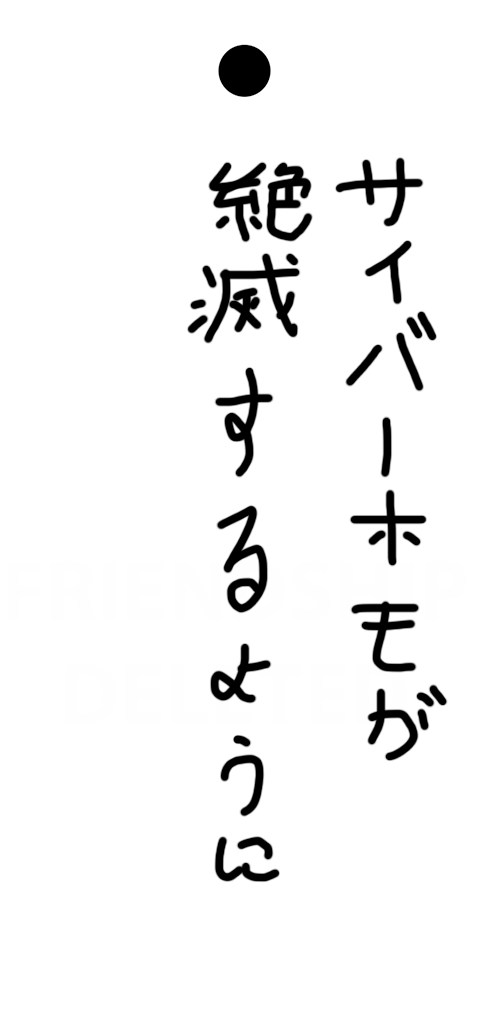 サイバーホモが
絶滅するように
FRIENDSHIP
DELETED